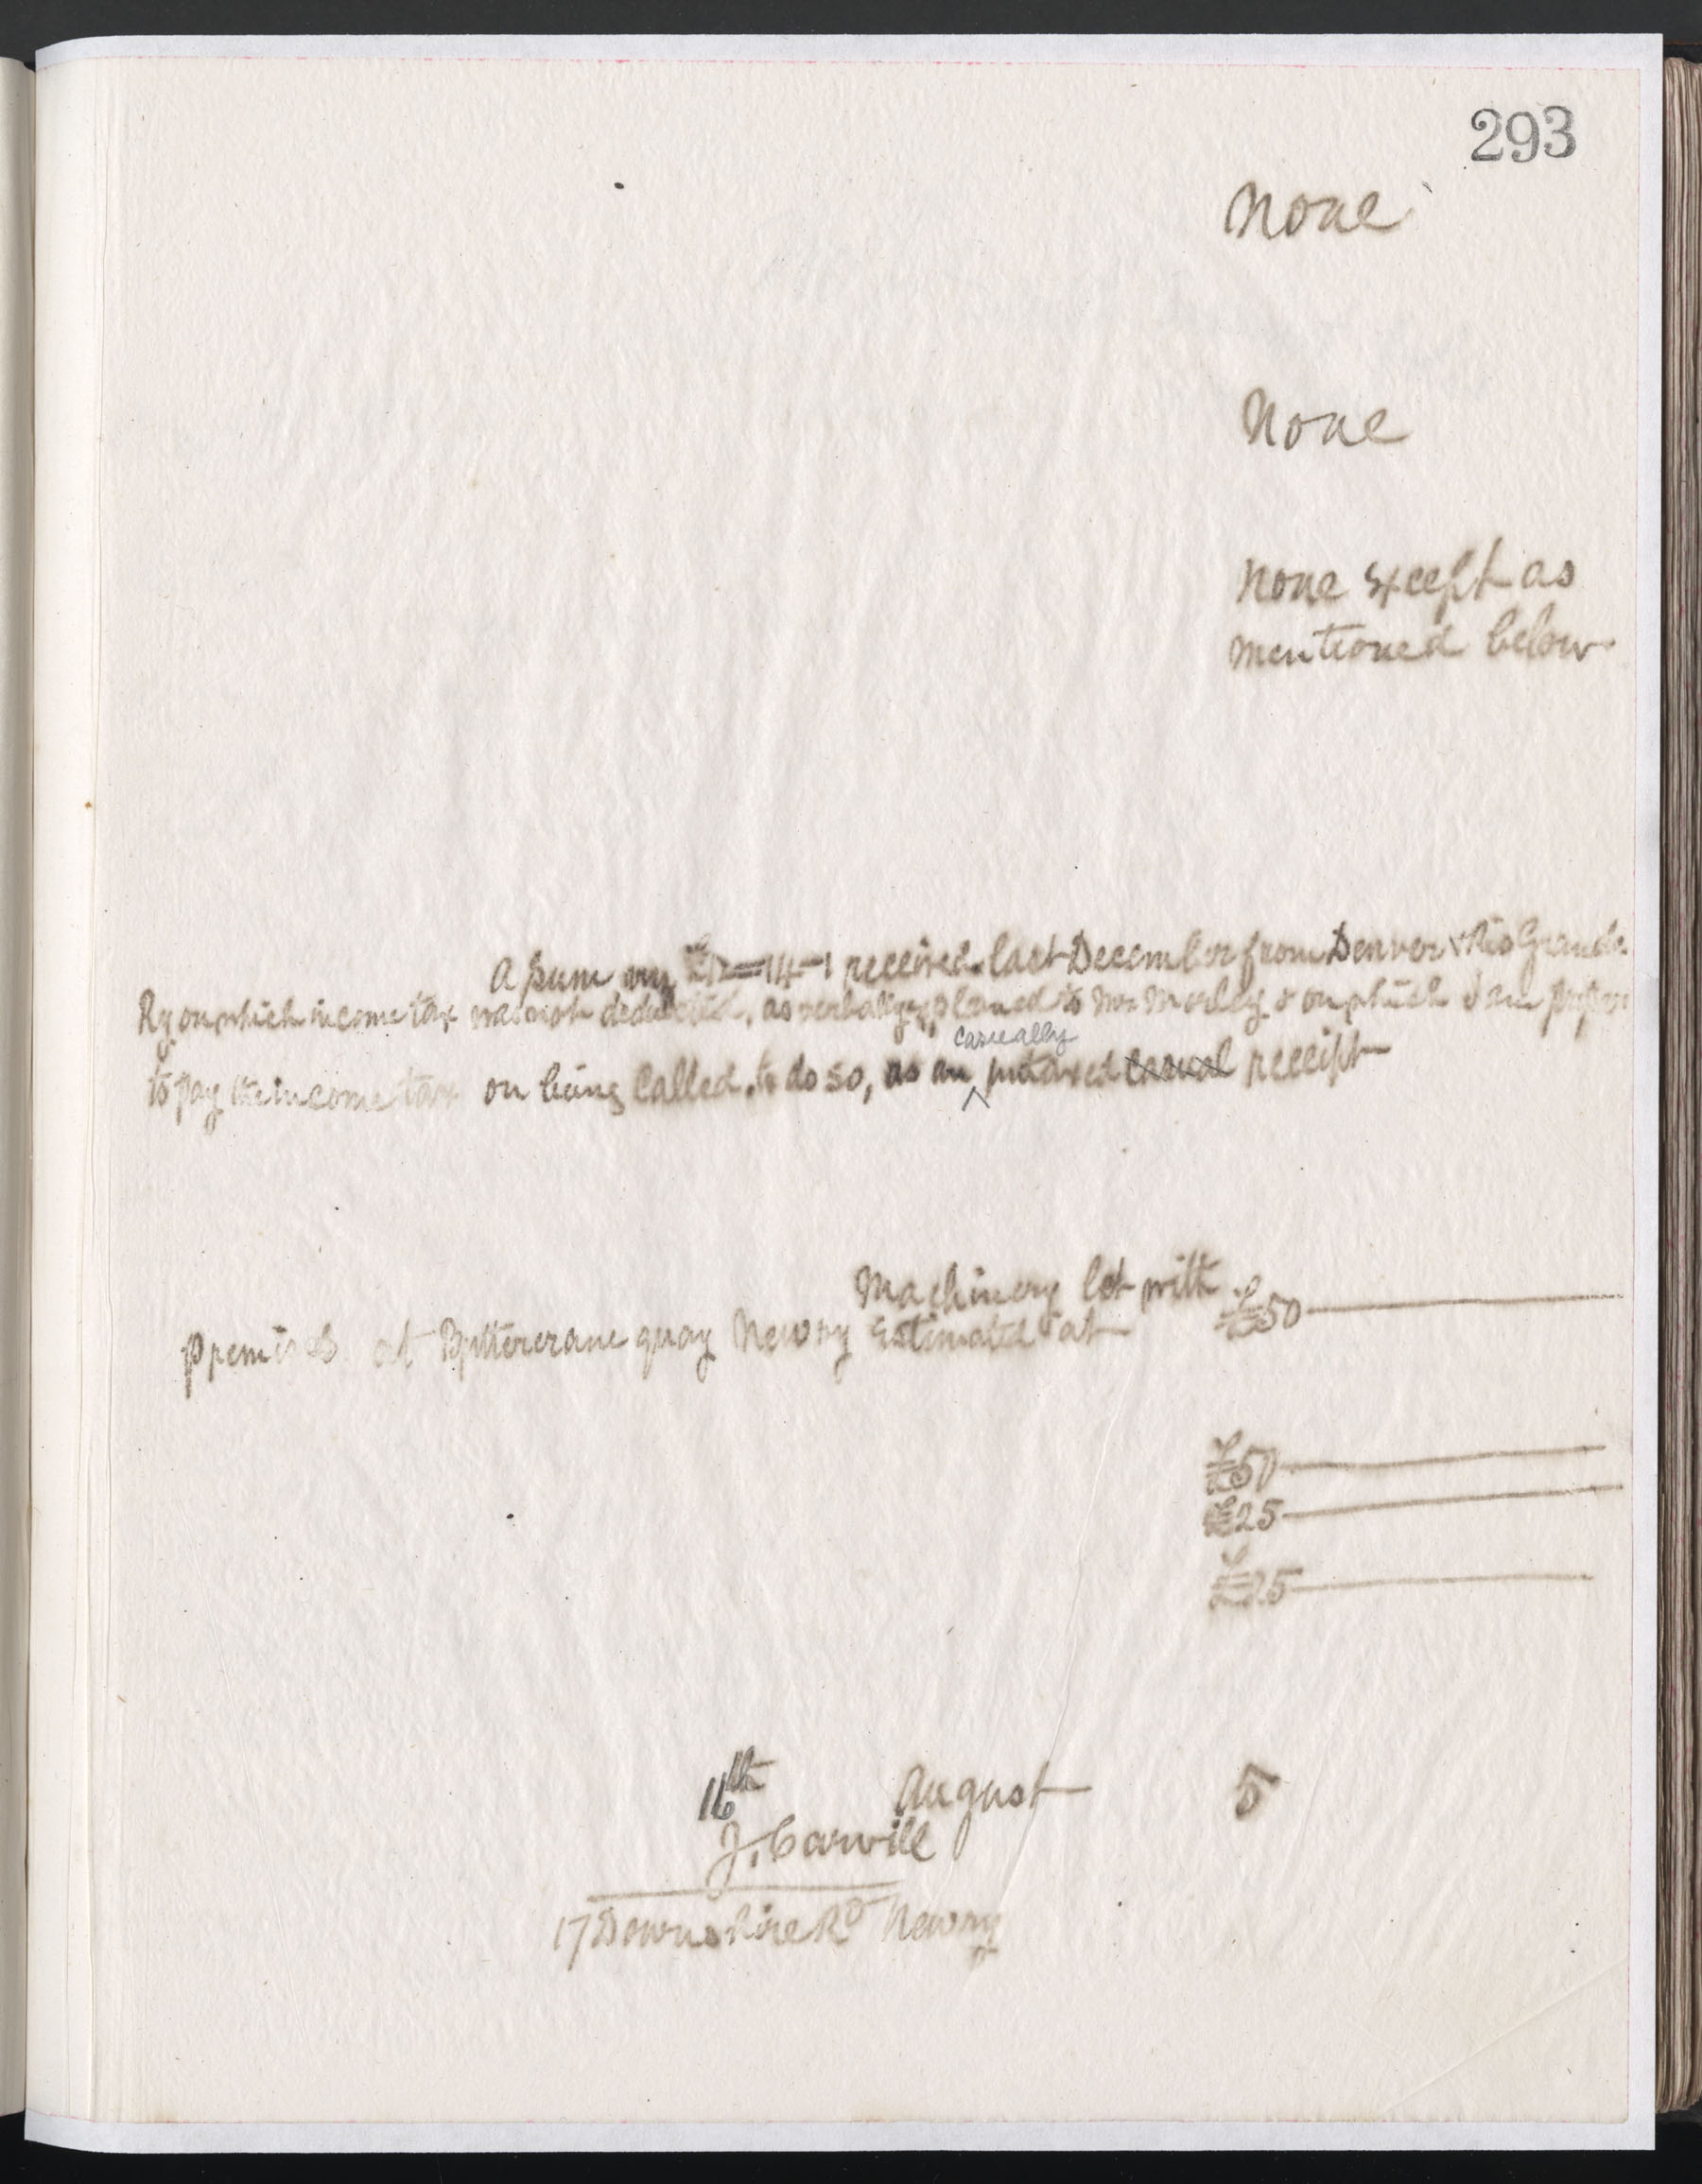 293
None
None
None except as
mentioned below
A sum my £12=14-1 received last December from Denver & Rio Grande
Ry on which income tax was not deducted, as verbally explained to Mr Morley & on which I am
casually
to pay the income tax on being called to do so, as an untaxed casual receipt
Machinery let with
premises at Buttercrane quay Newry Estimated at £50
£50
£25
£25
16th August 5
J. Carvill
17 Downshire Rd Newry